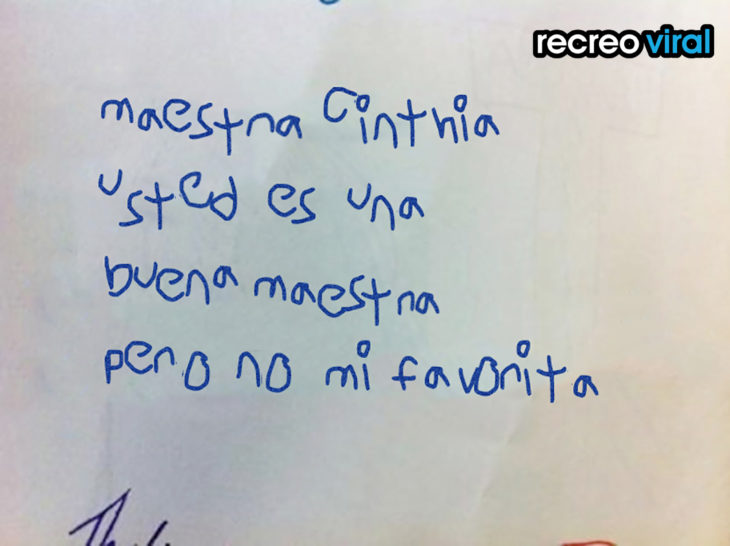 recreo viral
maestra Cinthia
usted es una
buena maestra
pero no mi favorita